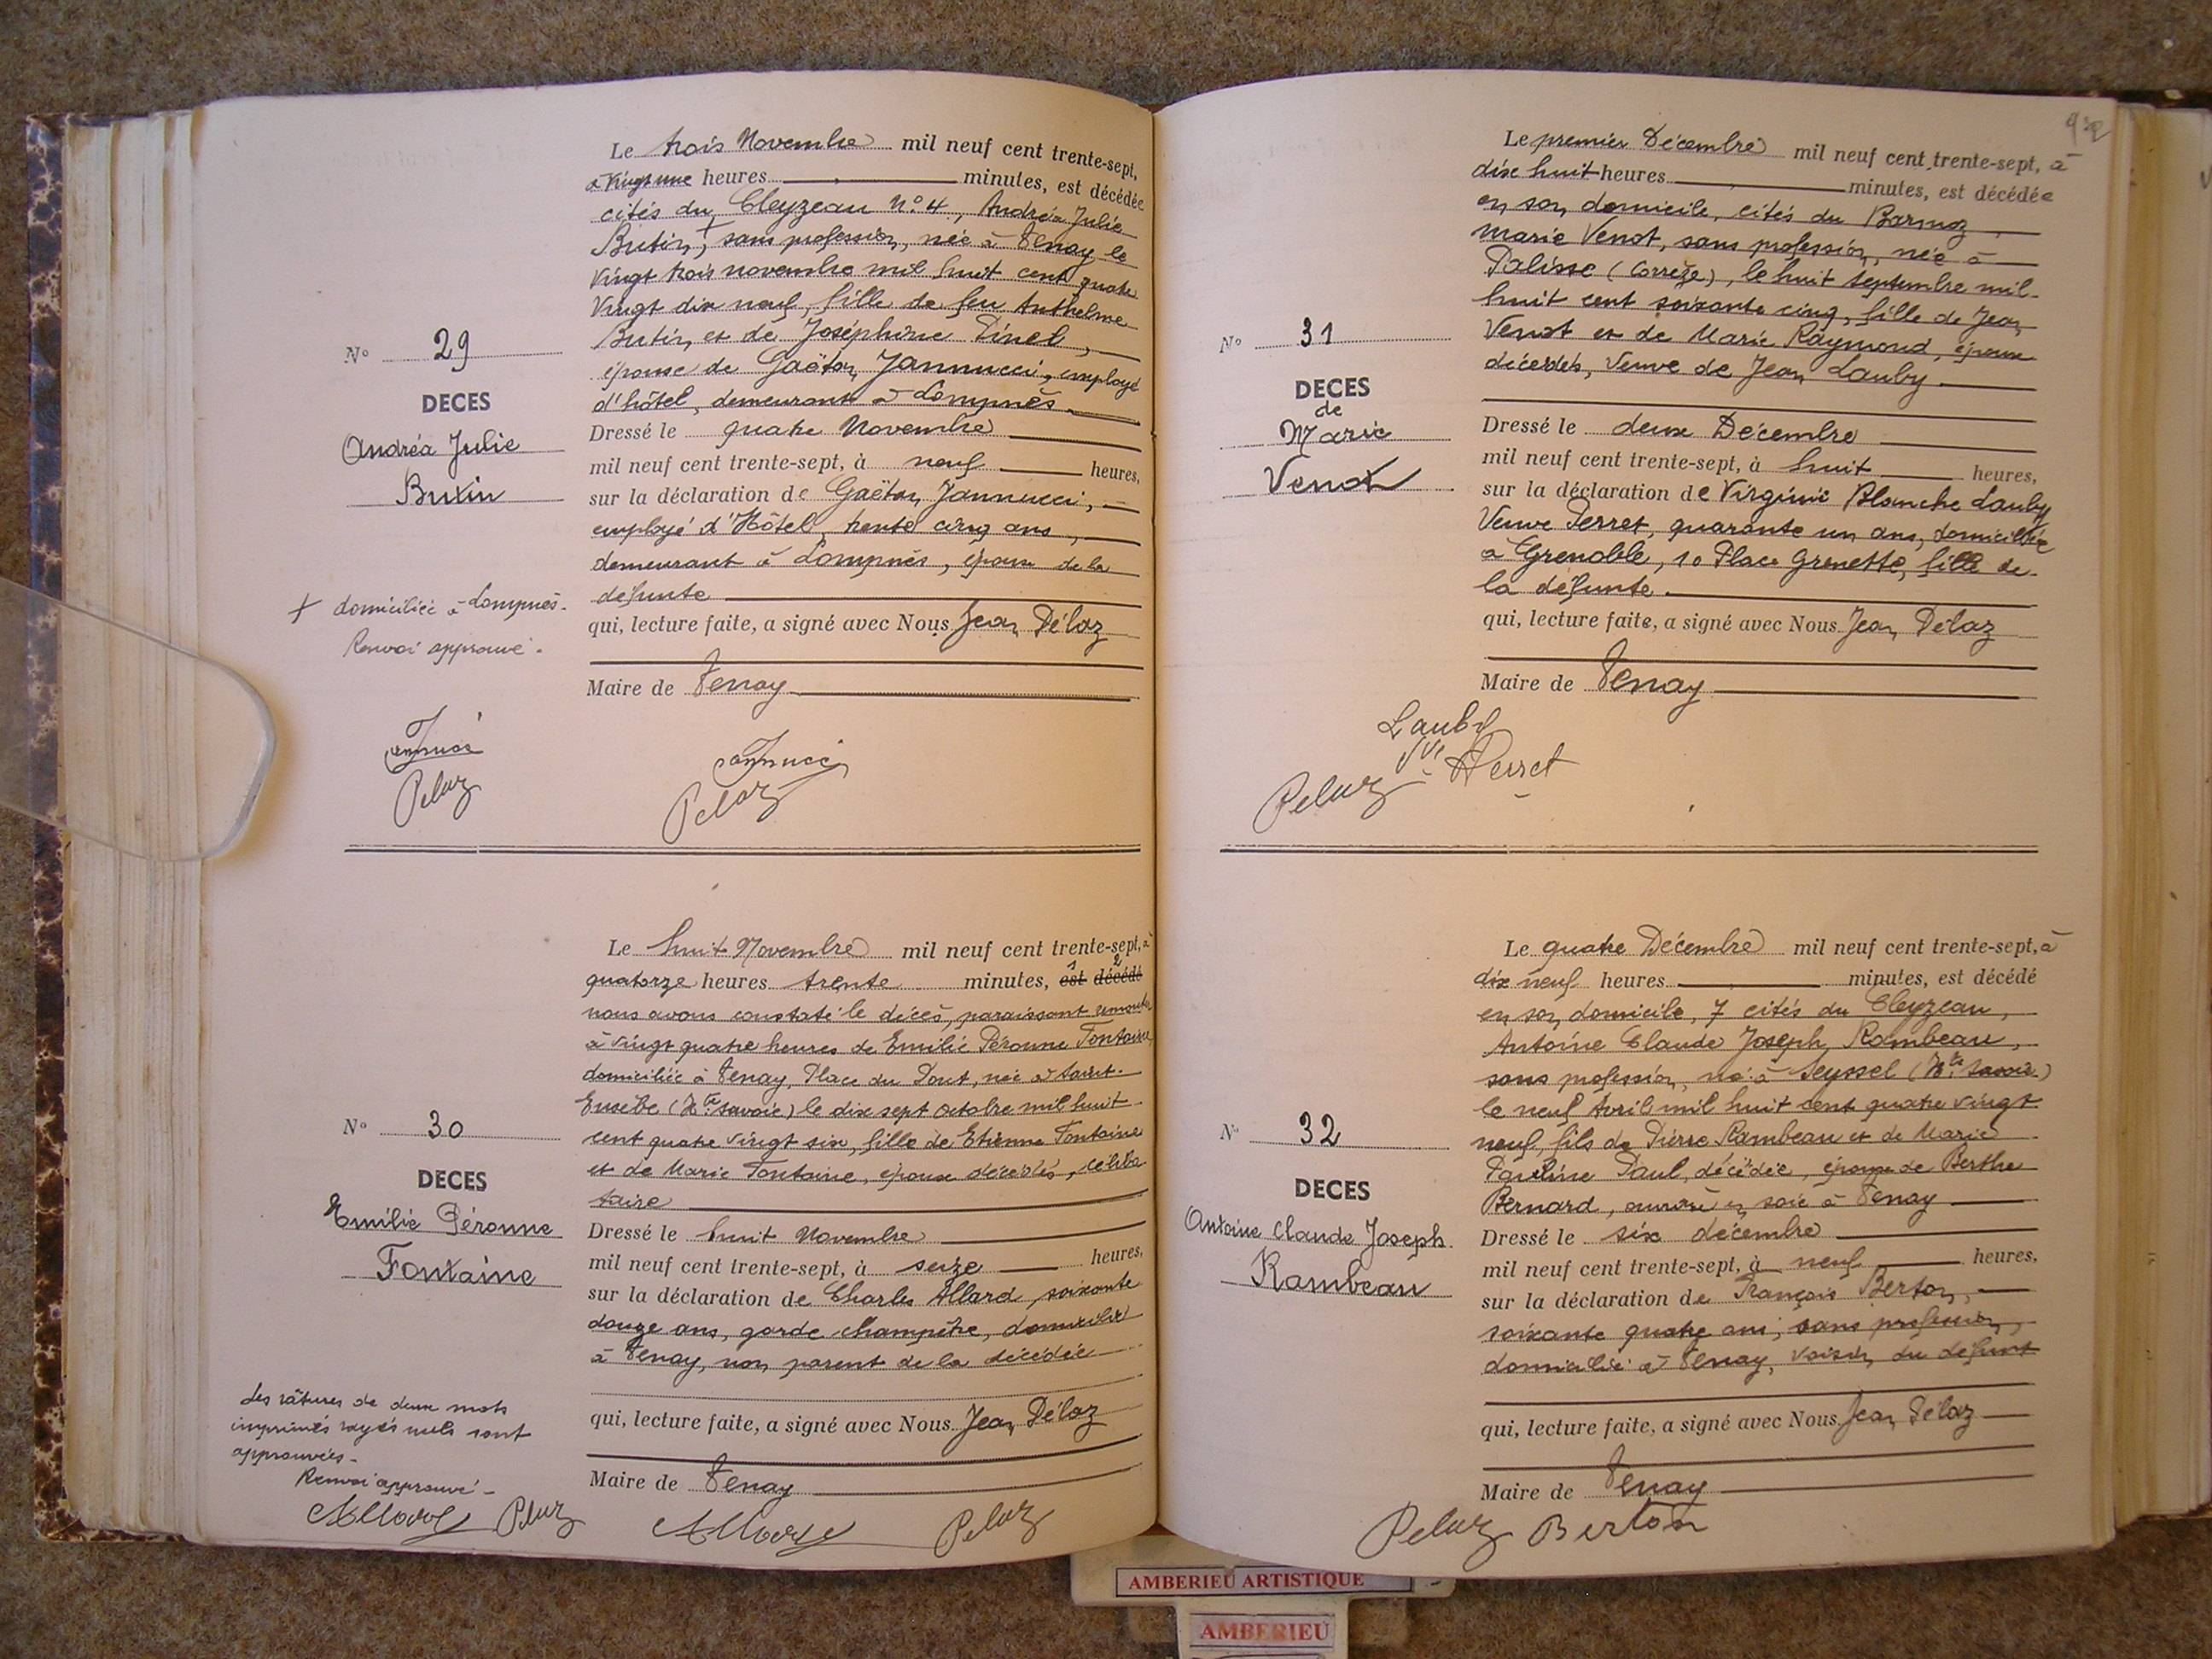 Le trois Novembre mil neuf cent trente-sept,
à vingt une heures minutes, est décédée
cités du Cleyzeau N° 4, Andréa Julie
Butin, + sans profession, née à Tenay le
vingt trois novembre mil huit cent quatre
vingt dix neuf, fille de feu Anthelme
Butin et de Joséphine Pinel,
épouse de Gaëtan Jannucci, employé
d'hôtel, demeurant à Lompnès.
N° 29
DECES
Andréa Julie
Butin
Dressé le quatre Novembre
mil neuf cent trente-sept, à neuf heures,
sur la déclaration de Gaëtan Jannucci,
employé d'Hôtel, trente cinq ans,
demeurant à Lompnès, époux de la
défunte
+ domiciliée à Lompnès.
Renvoi approuvé.
qui, lecture faite, a signé avec Nous, Jean Pélaz
Maire de Tenay
Jannucci
Pelaz
Jannucci
Pelaz
Le huit Novembre mil neuf cent trente-sept, à
quatorze heures trente minutes, est 1 décédé 2
nous avons constaté le décès, paraissant remonter
à vingt quatre heures de Emilie Péronne Fontaine
domiciliée à Tenay, Place du Pont, née à Saint-
Eusèbe (Hte Savoie) le dix sept octobre mil huit
cent quatre vingt six, fille de Etienne Fontaine
et de Marie Fontaine, époux décédés, céliba-
taire
N° 30
DECES
Emilie Péronne
Fontaine
Dressé le huit Novembre
mil neuf cent trente-sept, à seize heures,
sur la déclaration de Charles Allard, soixante
douze ans, garde champêtre, domicilié
à Tenay, non parent de la décédée
Les râtures de deux mots
imprimés rayés nuls sont
approuvées.
Renvoi approuvé.
qui, lecture faite, a signé avec Nous Jean Pélaz
Maire de Tenay
Allard Pelaz
Allard Pelaz
Le premier Décembre mil neuf cent trente-sept, à
dix huit heures minutes, est décédée
en son domicile, cités du Barmoz,
Marie Venot, sans profession, née à
Palisse (Corrèze), le huit septembre mil
huit cent soixante cinq, fille de Jean
Venot et de Marie Raymond, époux
décédés, Veuve de Jean Lauby
N° 31
DECES
de
Marie
Venot
Dressé le deux Décembre
mil neuf cent trente-sept, à huit heures,
sur la déclaration de Virginie Blanche Lauby
Veuve Perret, quarante un ans, domiciliée
à Grenoble, 10 Place Grenette, fille de
la défunte.
qui, lecture faite, a signé avec Nous Jean Pélaz
Maire de Tenay
Lauby
Vve Perret
Pelaz
Le quatre Décembre mil neuf cent trente-sept, à
dix neuf heures minutes, est décédé
en son domicile, 7 cités du Cleyzeau,
Antoine Claude Joseph Rambeau,
sans profession, né à Seyssel (Hte Savoie)
le neuf Avril mil huit cent quatre vingt
neuf, fils de Pierre Rambeau et de Marie
Pauline Paul, décédée, époux de Berthe
Bernard, ouvrière en soie à Tenay
N° 32
DECES
Antoine Claude Joseph
Rambeau
Dressé le six décembre
mil neuf cent trente-sept, à neuf heures,
sur la déclaration de François Berton,
soixante quatre ans, sans profession,
domicilié à Tenay, voisin du défunt
qui, lecture faite, a signé avec Nous Jean Pélaz
Maire de Tenay
Pelaz Berton
AMBERIEU ARTISTIQUE
AMBERIEU